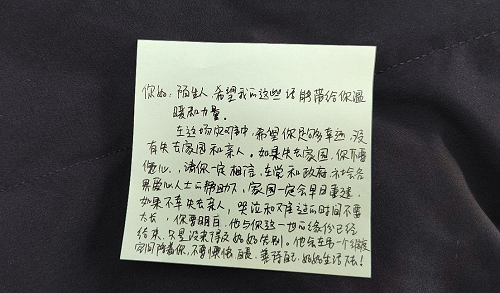 你好,陌生人,希望我的这些话能带给你温
暖和力量。
在这场灾难中,希望你足够幸运,没
有失去家园和亲人。如果失去家园,你不要
灰心,请你一定相信,在党和政府、社会各
界爱心人士的帮助下,家园一定会早日重建。
如果不幸失去亲人,哭泣和难过的时间不要
太长,你要明白,他与你这一世的缘份已经
结束,只是没来得及好好告别。他会在另一个维度
空间陪着你,不要懊悔、自责,善待自己,好好生活下去!